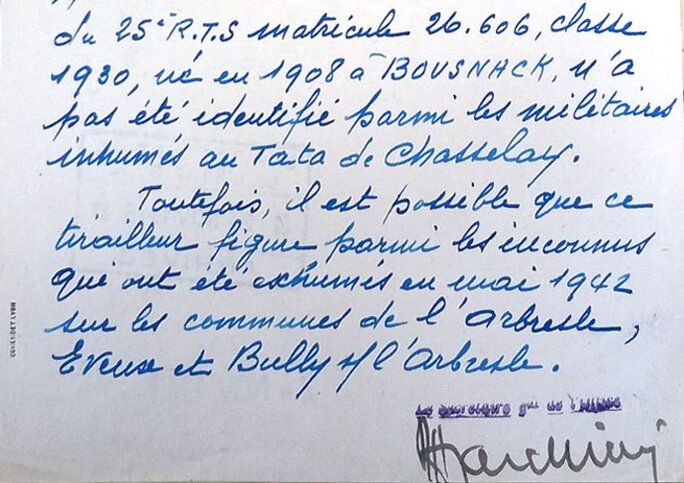 du 25è R.T.S matricule 26.606, classe
1930, né en 1908 à BOUSNACK, n'a
pas été identifié parmi les militaires
inhumés au Tata de Chasselay.
Toutefois, il est possible que ce
tirailleur figure parmi les inconnus
qui ont été exhumés en mai 1942
sur les communes de l'Arbresle,
Eveux et Bully s/ l'Arbresle.